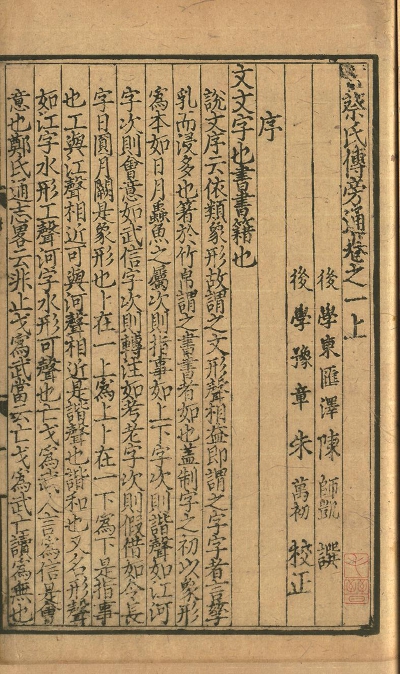 蔡氏傳旁通卷之一上
後學東匯澤陳師凱 譔
後學豫章朱萬初校正
序
文文字也書書籍也
說文序云依類象形故謂之文形聲相益即謂之字字者言孳
乳而浸多也著於竹帛謂之書書者如也蓋制字之初以象形
為本如日月蟲魚之屬次則指事如上下字次則諧聲如江河
字次則會意如武信字次則轉注如考老字次則假借如令長
字日圓月闕是象形也卜在一上為上卜在一下為下是指事
也工與江聲相近可與河聲相近是諧聲也諧和也又名形聲
如江字水形工聲河字水形可聲也止戈為武人言為信是會
意也鄭氏通志畧云非止戈為武當云亡戈為武亡讀為無也